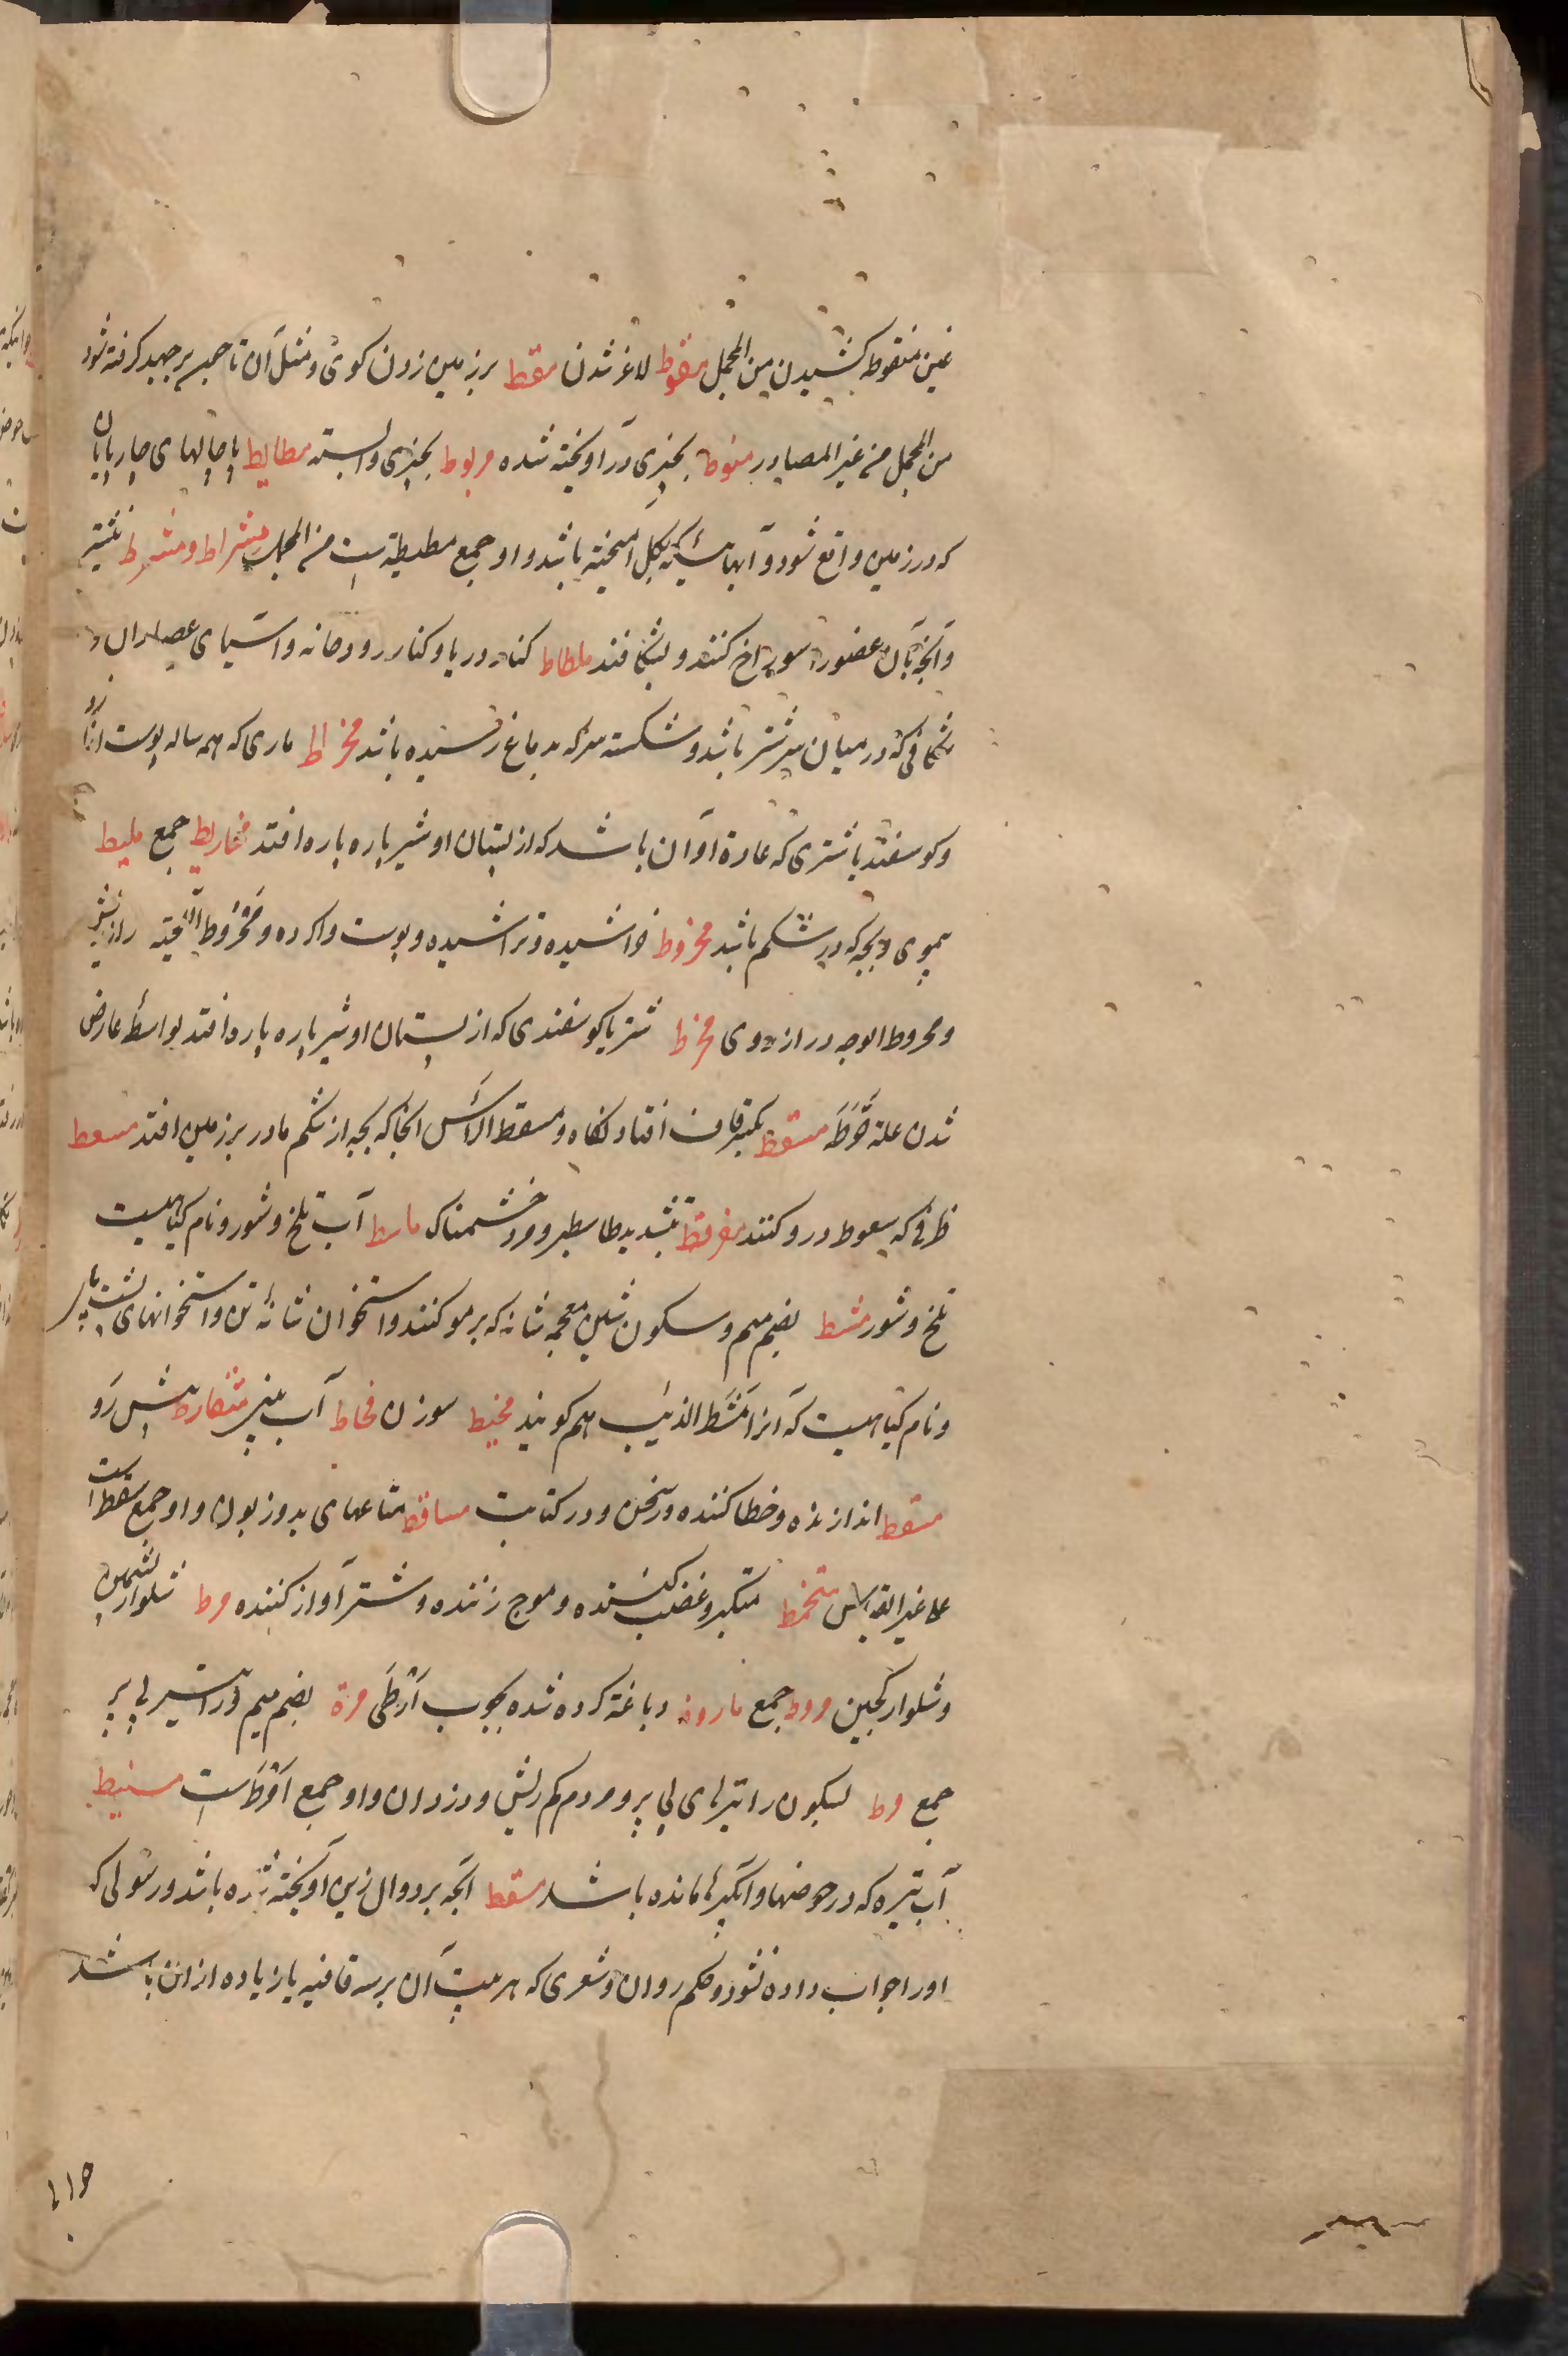 غین منقوطه کشیدن من المجمل مقوط لاغر شدن مقط بر زمین زدن کوی و مثل آن تا چون برجهد کرفته شود
من المجمل من غیر المصادر منوط بچیزی در آویخته شده مربوط بچیزی وابسته مطایط پاچالهای چارپایان
که در زمین واقع شود و آبها ئیکه بکل آمیخته باشد و او جمع مطیطة است من المجمل مشراط و مشرط نشتر
و آنچه بآن عضو را سوراخ کنند و بشکافند ملطاط کنار دریا و کنار رودخانه و آسیای عصاران و
شکافی که در میان سر شتر باشد و شکسته سر که بدماغ رسیده باشد مخراط ماری که همه ساله پوست اندازد
و کوسفند یا شتری که عادة او آن باشد که از پستان او شیر پاره پاره افتد مخاریط جمع ملیط
بیموی و بچه که در شکم باشد مخروط خراشیده و تراشیده و پوست واکرده و مخروط اللحیته دراز ریش
و مخروط الوجه دراز روی مخرط شتر یا کوسفندی که از پستان او شیر پاره پاره افتد بواسطه عارض
شدن علة خرط مسقط بکسر قاف افتادنکاه و مسقط الرأس آنجا که بچه از شکم مادر بر زمین افتد مسعط
ظرفی که سعوط درو کنند بتشدید طا سطبر و مرد خشمناک ماسط آب تلخ و شور و نام کیاهیست
تلخ و شور مشط بضم میم و سکون شین معجمه شانه که بر مو کنند و استخوان شانهٔ تن و استخوانهای پشت پای
و نام کیاهیست که آنرا مشط الذئب هم کویند مخیط سوزن مخاط آب بینی متفارط پیش رو
مسقط اندازنده و خطا کننده در سخن و در کتابت مساقط متاعهای بد و زبون و او جمع سقط است
علی غیر القیاس متخمط متکبر و غضب کننده و موج زننده و شتر آواز کننده مرط شلوار پشمین
و شلوار کجین مروط جمع ماروط دباغة کرده شده بچوب ارطی مرة بضم میم و را تیر بی پر
جمع مرط بسکون را تیرهای بی پر و مردم کم ریش و دزدان و او جمع امرط است مسیط
آب تیره که در حوضها و آبکیرها مانده باشد مسقط آنچه بر دوال زین آویخته شده باشد و رسولی که
او را جواب داده نشود و حکم روان و شعری که هر بیت آن بر سه قافیه یا زیاده از آن باشد